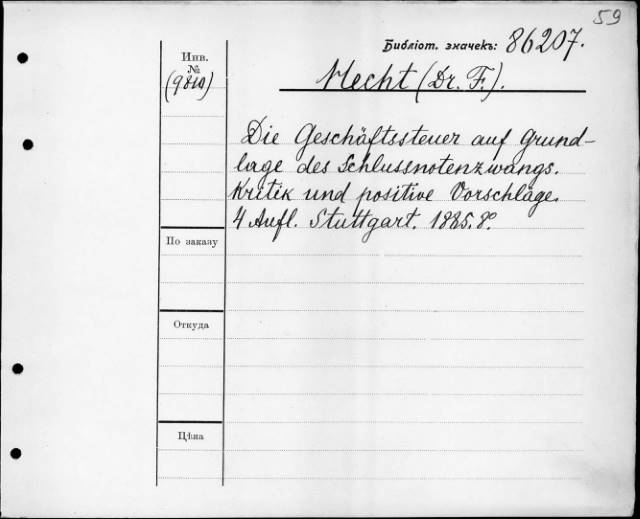 59
Библіот. значекъ: 86207.
Инв.
№
(9810)
Hecht (Dr. F.).
Die Geschäftssteuer auf Grund-
lage des Schlussnotenzwangs.
Kritik und positive Vorschläge.
4 Aufl. Stuttgart. 1885. 8º.
По заказу
Откуда
Цѣна